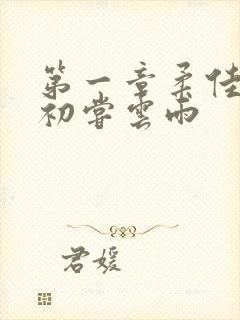 第一章柔佳
初嘗雲雨
君媛